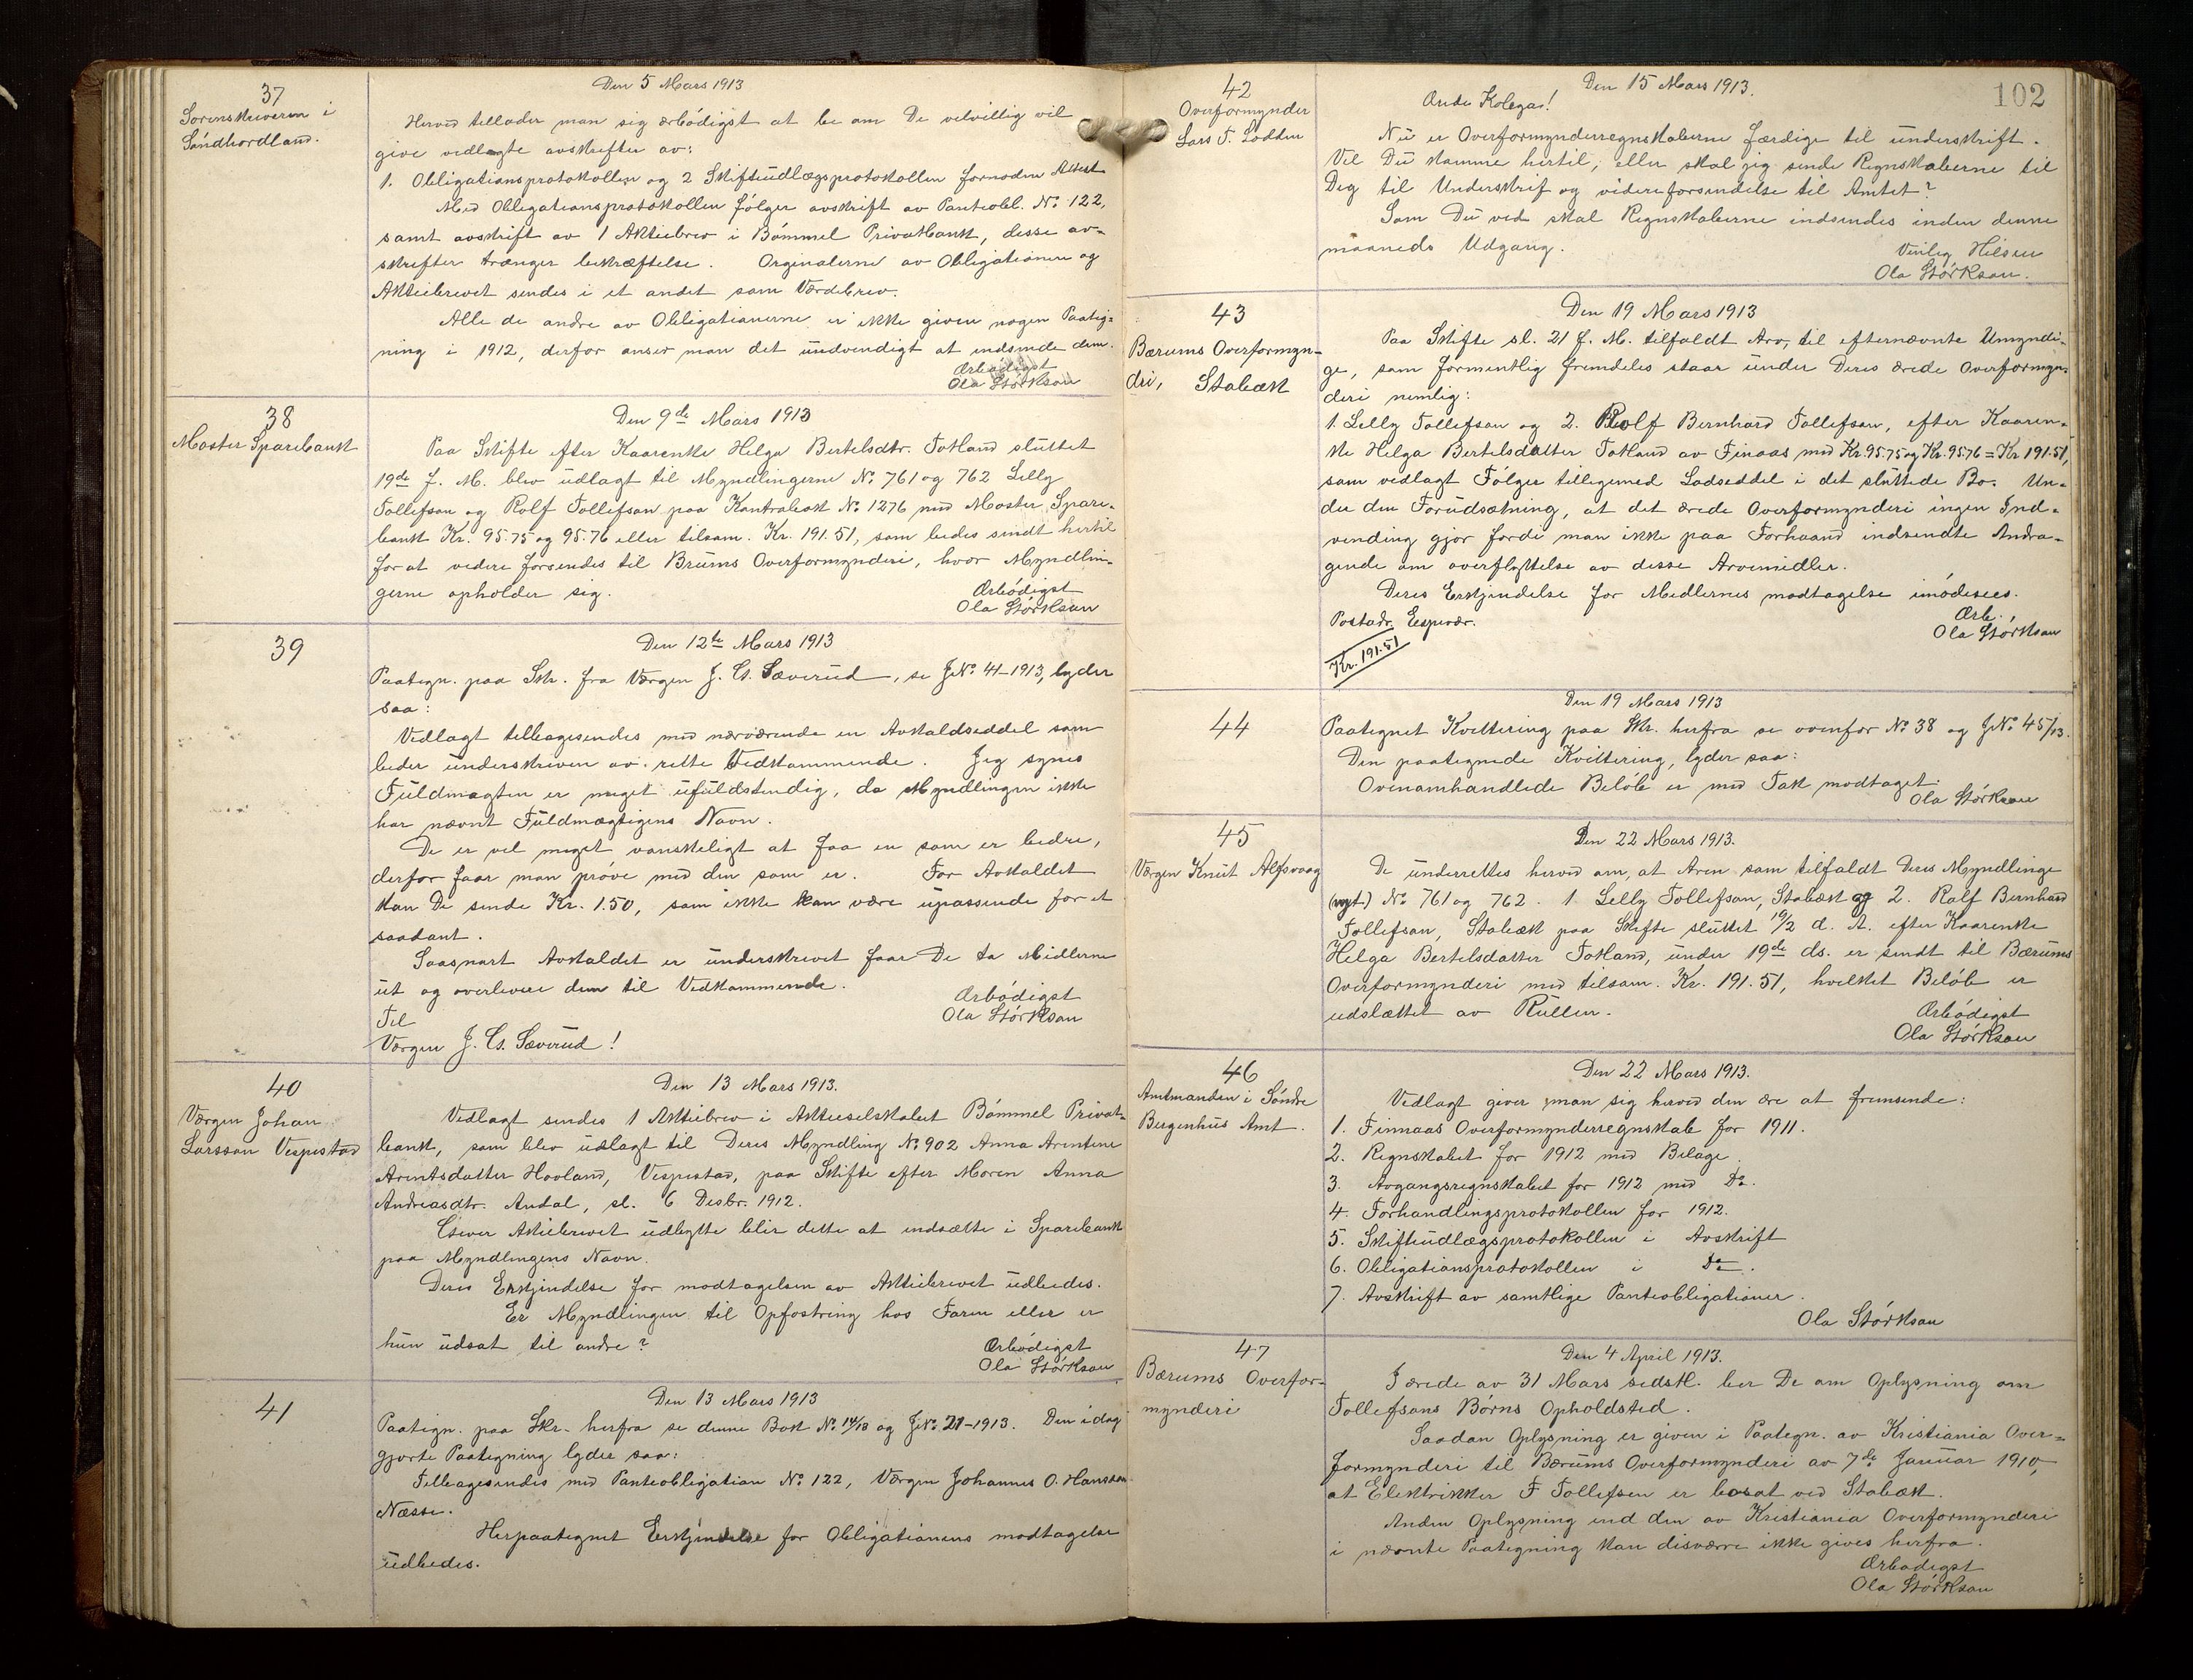 37
Sorenskriveren i
Söndhordland.
Den 5 Mars 1913
Herved tillader man sig ærbödigst at be om De velvillig vil
give vedlagte avskrifter av:
1. Obligationsprotokollen og 2 Skifteudlægsprotokollen fornoden Attest
Med Obligationsprotokollen fölger avskrift av Panteobl. No. 122,
samt avskrift av 1 Aktiebrev i Bömmel Privatbank, desse av-
skrifter trænger bekræftelse. Orginalerne av Obligationen og
Aktiebrevet sendes i et andet som Værdibrev.
Alle de andre av Obligationerne er ikke given nogen Paateg-
ning i 1912, derfor anser man det unödvendigt at indsende dem.
Ærbödigst
Ola Störkson
38
Moster Sparebank
Den 9de Mars 1913
Paa Skifte efter Kaarenke Helga Bertelsdtr. Totland sluttet
19de f. M. blev udlagt til Myndlingerne No. 761 og 762 Lelly
Tollefson og Rolf Tollefson paa Kontrabok No. 1276 med Moster Spare-
bank Kr. 95.75 og 95.76 eller tilsam. Kr. 191.51, som bedes sendt hertil
for at videre forsendes til Brums Overformynderi, hvor Myndlin-
gerne opholder sig.
Ærbödigst
Ola Störkson
39
Den 12te Mars 1913
Paategn. paa Skr. fra Værgen J. Cs. Sæverud, se JNo. 41-1913, lyder
saa:
Vedlagt tilbagesendes med nærværende en Avkaldseddel som
bedes underskreven av rette Vedkommende. Jeg synes
Fuldmagten er meget ufuldstendig, da Myndlingen ikke
har nævnt Fuldmægtigens Navn.
De er vel meget vanskeligt at faa en som er bedre,
derfor faar man pröve med den som er. For Avkaldet
kan De sende Kr. 1.50, som ikke kan være upassende for et
saadant.
Saasnart Avkaldet er underskrevet faar De ta Midlerne
ut og overlevere dem til Vedkommende.
Ærbödigst
Til
Ola Störkson
Værgen J. Cs. Sæverud!
40
Værgen Johan
Larsson Vespestad
Den 13 Mars 1913.
Vedlagt sendes 1 Aktiebrev i Aktieselskabet Bömmel Privat-
bank, som blev udlagt til Deres Myndling No. 902 Anna Arentine
Arentsdatter Hovland, Vespestad, paa Skifte efter Moren Anna
Andreasdtr. Andal, sl. 6 Desbr. 1912.
Giver Aktiebrevet udbytte blir dette at indsætte i Sparebank
paa Myndlingens Navn.
Deres Erkjendelse for modtagelsen av Aktiebrevet udbedes.
Er Myndlingen til Opfostring hos Faren eller er
hun udsat til andre?
Ærbödigst
Ola Störkson
41
Den 13 Mars 1913
Paategn. paa Skr. herfra se denne Bok No. 14/13 og JNo. 21-1913. Den i dag
gjorte Paategning lyder saa:
Tilbagesendes med Panteobligation No. 122, Værgen Johannes O. Hansson
Næsse.
Herpaategnet Erkjendelse for Obligationens modtagelse
udbedes.
102
42
Overformynder
Lars T. Lodden
Den 15 Mars 1913.
Ande Kolega!
Nu er Overformynderregnskaberne færdige til underskrift.
Vil Du komme hertil, eller skal jeg sende Regnskaberne til
Deg til Underskrif og videreforsendelse til Amtet?
Som Du ved skal Regnskaberne indsendes inden denne
maaneds Udgang.
Venlig Hilsen
Ola Störkson.
43
Bærums Overformyn-
deri, Stabæk
Den 19 Mars 1913
Paa Skifte sl. 21 f. M. tilfaldt Arv, til efternævnte Umyndi-
ge, som formentlig fremdeles staar under Deres ærede Overformyn-
deri nemlig:
1. Lelly Tollefson og 2. Rolf Bernhard Tollefson, efter Kaaren-
ke Helga Bertelsdatter Totland av Finaas med Kr. 95.75 og Kr. 95.76 = Kr 191.51,
som vedlagt Fölger tilligemed Lodseddel i det sluttede Bo. Un-
der den Forudsætning, at det ærede Overformynderi ingen Ind-
vending gjor fordi man ikke paa Forhaand indsendte Andra-
gende om overflyttelse av desse Arvemidler.
Deres Erkjendelse for Medlernes modtagelse imödesees.
Postadr. Espevær.
Ærb.
Ola Störkson
Kr. 191.51
44
Den 19 Mars 1913
Paategnet Kvittering paa Skr. herfra se ovenfor No. 38 og JNo. 45/13.
Den paategnede Kvittering, lyder saa:
Ovenomhandlede Belöb er med Tak modtaget.
Ola Störkson
45
Værgen Knut Alfsvaag
Den 22 Mars 1913.
De underrettes herved om, at Arven som tilfaldt Deres Myndlinge
No. 761 og 762. 1. Lelly Tollefson, Stabæk og 2. Rolf Bernhard
Tollefson, Stabæk paa Skifte sluttet 19/2 d. A. efter Kaarenke
Helga Bertelsdatter Totland, under 19de ds. er sendt til Bærums
Overformynderi med tilsam. Kr. 191.51, hvilket Belöb er
udslættet av Rullen.
Ærbödigst
Ola Störkson
46
Amtmanden i Söndre
Bergenhus Amt.
Den 22 Mars 1913.
Vedlagt giver man sig herved den ære at fremsende:
1. Finnaas Overformynderregnskab for 1911.
2. Regnskabet for 1912 med Bilage.
3. Avgangsregnskabet for 1912 med Do.
4. Forhandlingsprotokollen for 1912.
5. Skifteudlægsprotokollen i Avskrift
6. Obligationsprotokollen i Do.
7. Avskrift av samtlige Panteobligationer.
Ola Störkson
47
Bærums Overfor-
mynderi
Den 4 April 1913.
I ærede av 31 Mars sidstl. ber De om Oplysning om
Tollefsons Börns Opholdsted.
Saadan Oplysning er given i Paategn. av Kristiania Over-
formynderi til Bærums Overformynderi av 7de Januar 1910,
at Elektrikker F Tollefsen er bosat ved Stabæk.
Anden Oplysning end den av Kristiania Overformynderi
i nævnte Paategning kan disværre ikke gives herfra.
Ærbödigst
Ola Störkson